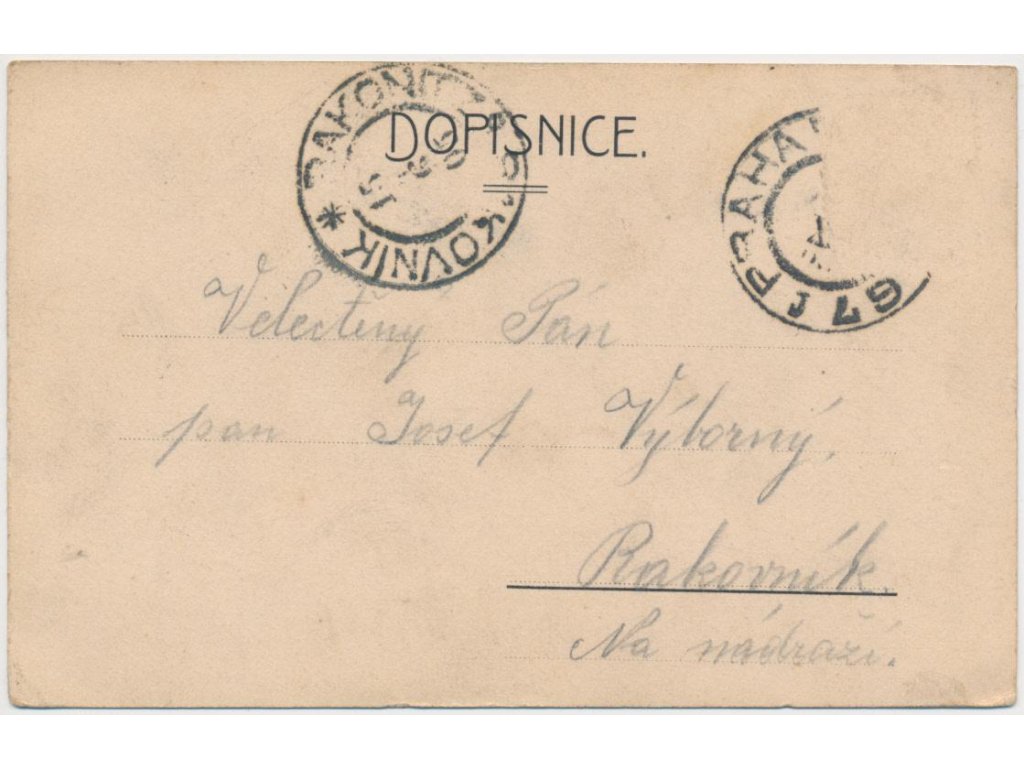 DOPISNICE.
RAKONITZ RAKOVNÍK *
15
PRAHA
67
Velectěný Pán
pan Josef Výborný,
Rakovník.
Na nádraží.